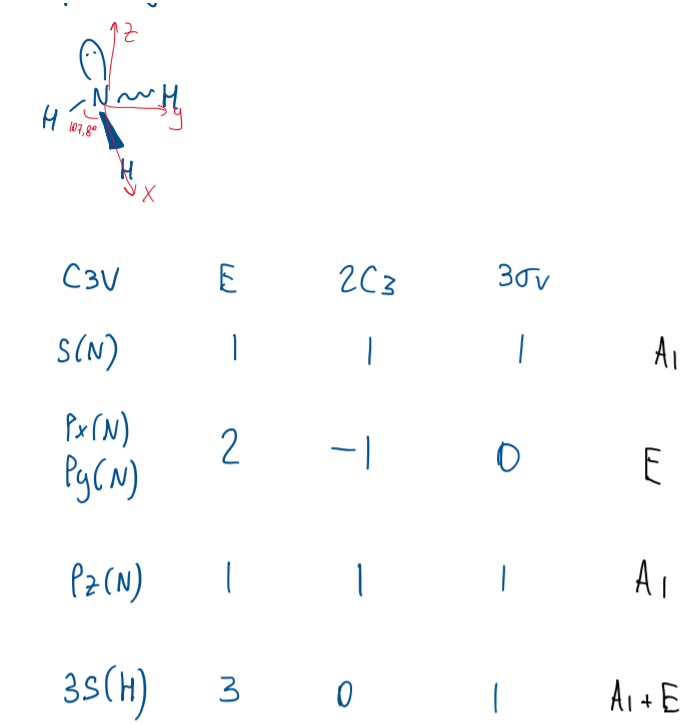 Z
N H
H y
107,8°
H
X
C3V E 2C3 3σv
S(N) 1 1 1 A1
Px(N)
Py(N) 2 -1 0 E
Pz(N) 1 1 1 A1
3S(H) 3 0 1 A1+E